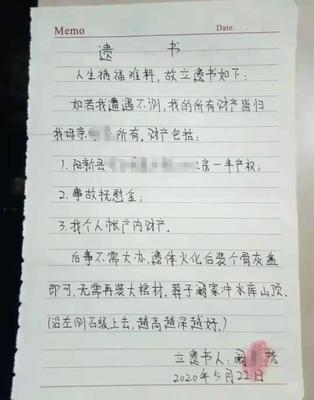 Memo
Date.
遗 书
人生祸福难料，故立遗书如下：
如若我遭遇不测，我的所有财产皆归
我母亲 所有。财产包括：
1.阳新县 房一半产权；
2.事故抚慰金；
3.我个人帐户内财产。
后事不需大办，遗体火化后装个骨灰盒
即可，无需再装大棺材。葬于阚家冲水库山顶。
（沿左侧石级上去，越高越深越好。）
立遗书人：阚
2020年5月22日